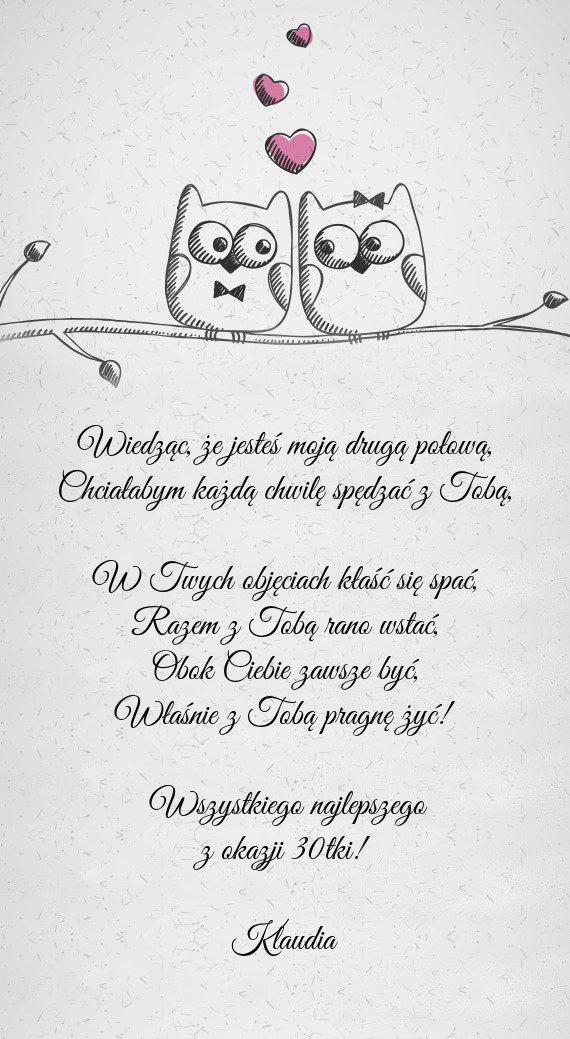 Wiedząc, że jesteś moją drugą połową,
Chciałabym każdą chwilę spędzać z Tobą,
W Twych objęciach kłaść się spać,
Razem z Tobą rano wstać,
Obok Ciebie zawsze być,
Właśnie z Tobą pragnę żyć!
Wszystkiego najlepszego
z okazji 30tki!
Klaudia